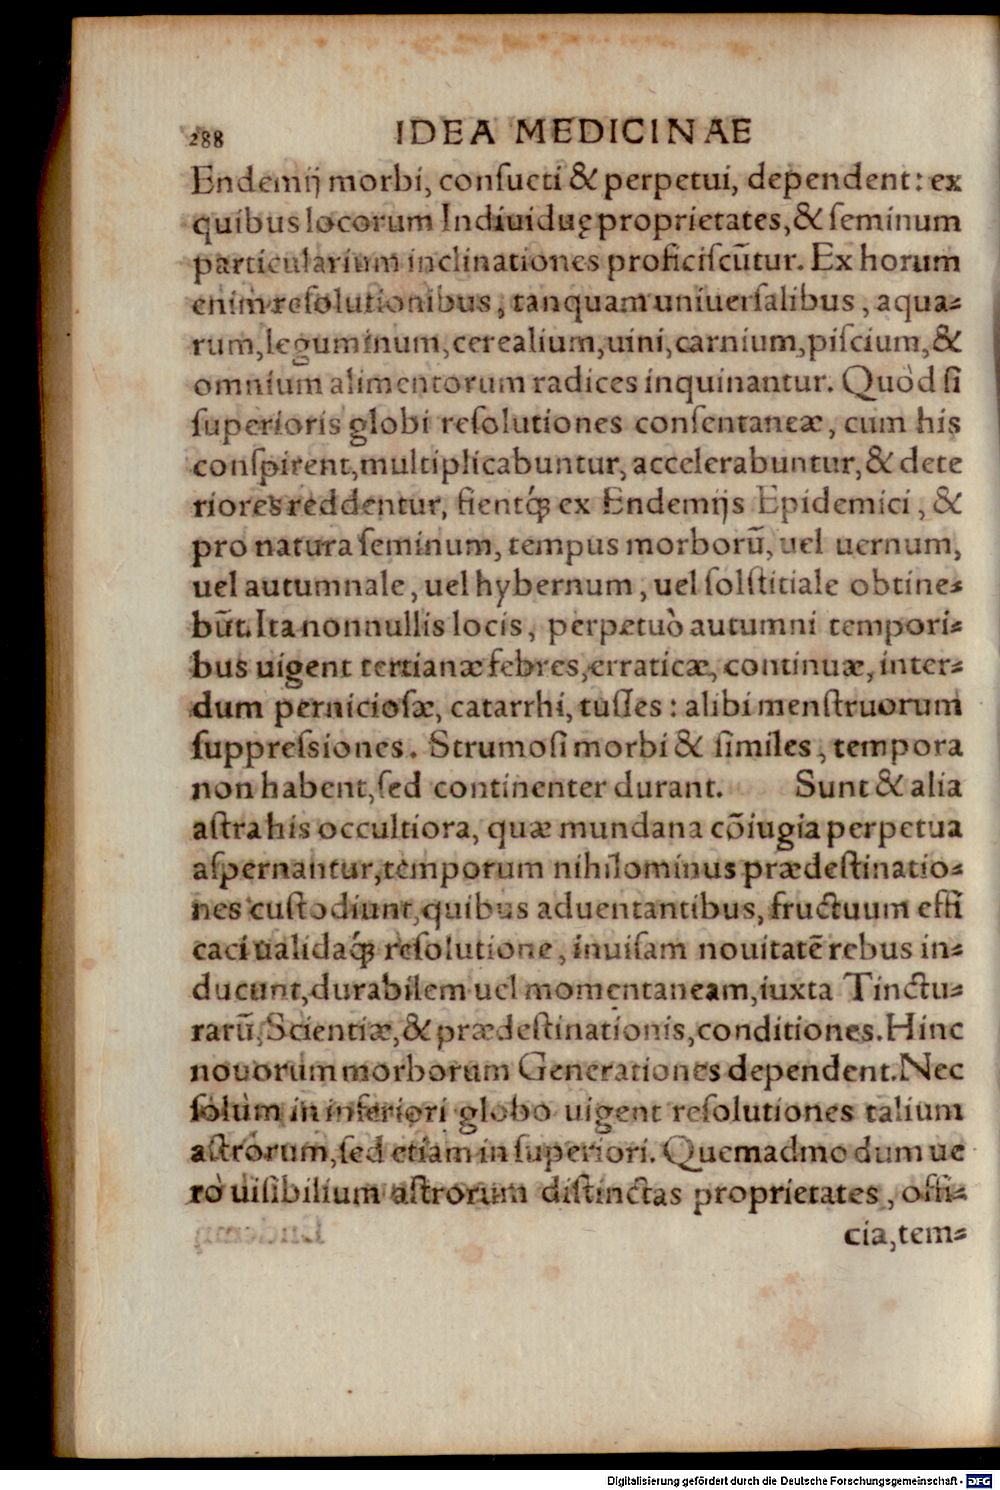 288 IDEA MEDICINAE
Endemij morbi, consueti & perpetui, dependent: ex
quibus locorum Indiuiduę proprietates, & seminum
particularium inclinationes proficiscūtur. Ex horum
enim resolutionibus, tanquam uniuersalibus, aqua-
rum, leguminum, cerealium, uini, carnium, piscium, &
omnium alimentorum radices inquinantur. Quòd si
superioris globi resolutiones consentaneæ, cum his
conspirent, multiplicabuntur, accelerabuntur, & dete
riores reddentur, fientq́; ex Endemijs Epidemici, &
pro natura seminum, tempus morborū, uel uernum,
uel autumnale, uel hybernum, uel solstitiale obtine-
būt. Ita nonnullis locis, perpetuò autumni tempori-
bus uigent tertianæ febres, erraticæ, continuæ, inter-
dum perniciosæ, catarrhi, tusses: alibi menstruorum
suppressiones. Strumosi morbi & similes, tempora
non habent, sed continenter durant. Sunt & alia
astra his occultiora, quæ mundana cōiugia perpetua
aspernantur, temporum nihilominus prædestinatio-
nes custodiunt, quibus aduentantibus, fructuum effi
caci ualidaq́; resolutione, inuisam nouitatē rebus in-
ducunt, durabilem uel momentaneam, iuxta Tinctu-
rarū, Scientiæ, & prædestinationis, conditiones. Hinc
nouorum morborum Generationes dependent. Nec
solùm in inferiori globo uigent resolutiones talium
astrorum, sed etiam in superiori. Quemadmodum ue
rò uisibilium astrorum distinctas proprietates, offi-
cia, tem-
Digitalisierung gefördert durch die Deutsche Forschungsgemeinschaft - DFG